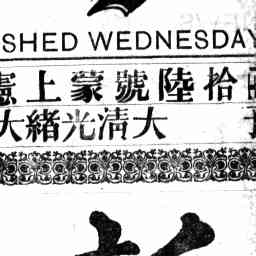 SHED WEDNESDAY
憲上蒙號陸拾
大緒光清大